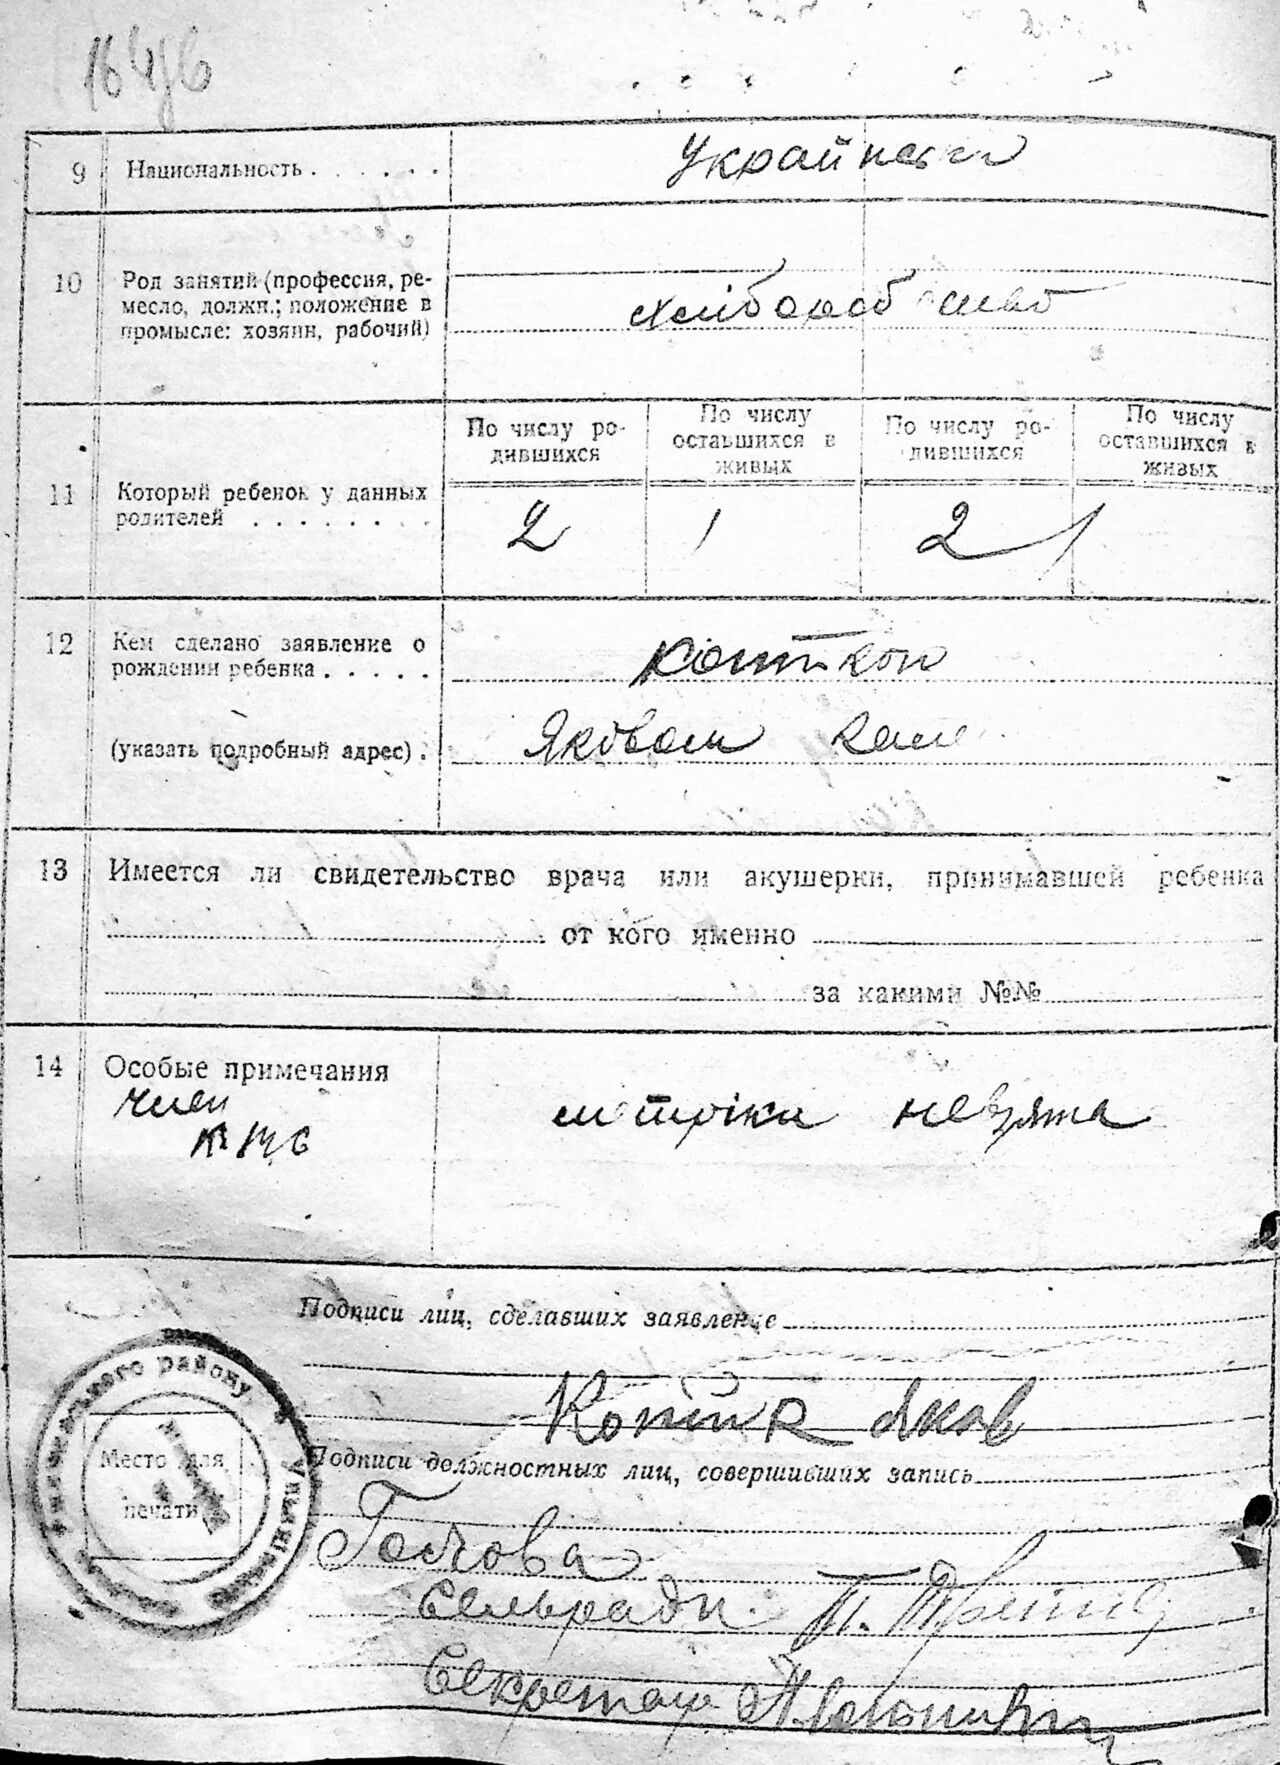 9 Национальность . . . . . . Украйнски
10 Род занятий (профессия, ре-
месло, должн.; положение в
промысле: хозяин, рабочий)
хлібороб
По числу ро-
дившихся
По числу
оставшихся в
живых
По числу ро-
дившихся
По числу
оставшихся в
живых
11 Который ребенок у данных
родителей . . . . . . . .
2 1 2 1
12 Кем сделано заявление о
рождении ребенка . . . . .
(указать подробный адрес) .
Яковом
13 Имеется ли свидетельство врача или акушерки, принимавшей ребенка
от кого именно
за какими №№
14 Особые примечания
член
метріки невзята
Подписи лиц, сделавших заявление
Яков
Подписи должностных лиц, совершивших запись
Место для
печати
району
Голова
Сельради П.
Секретарь